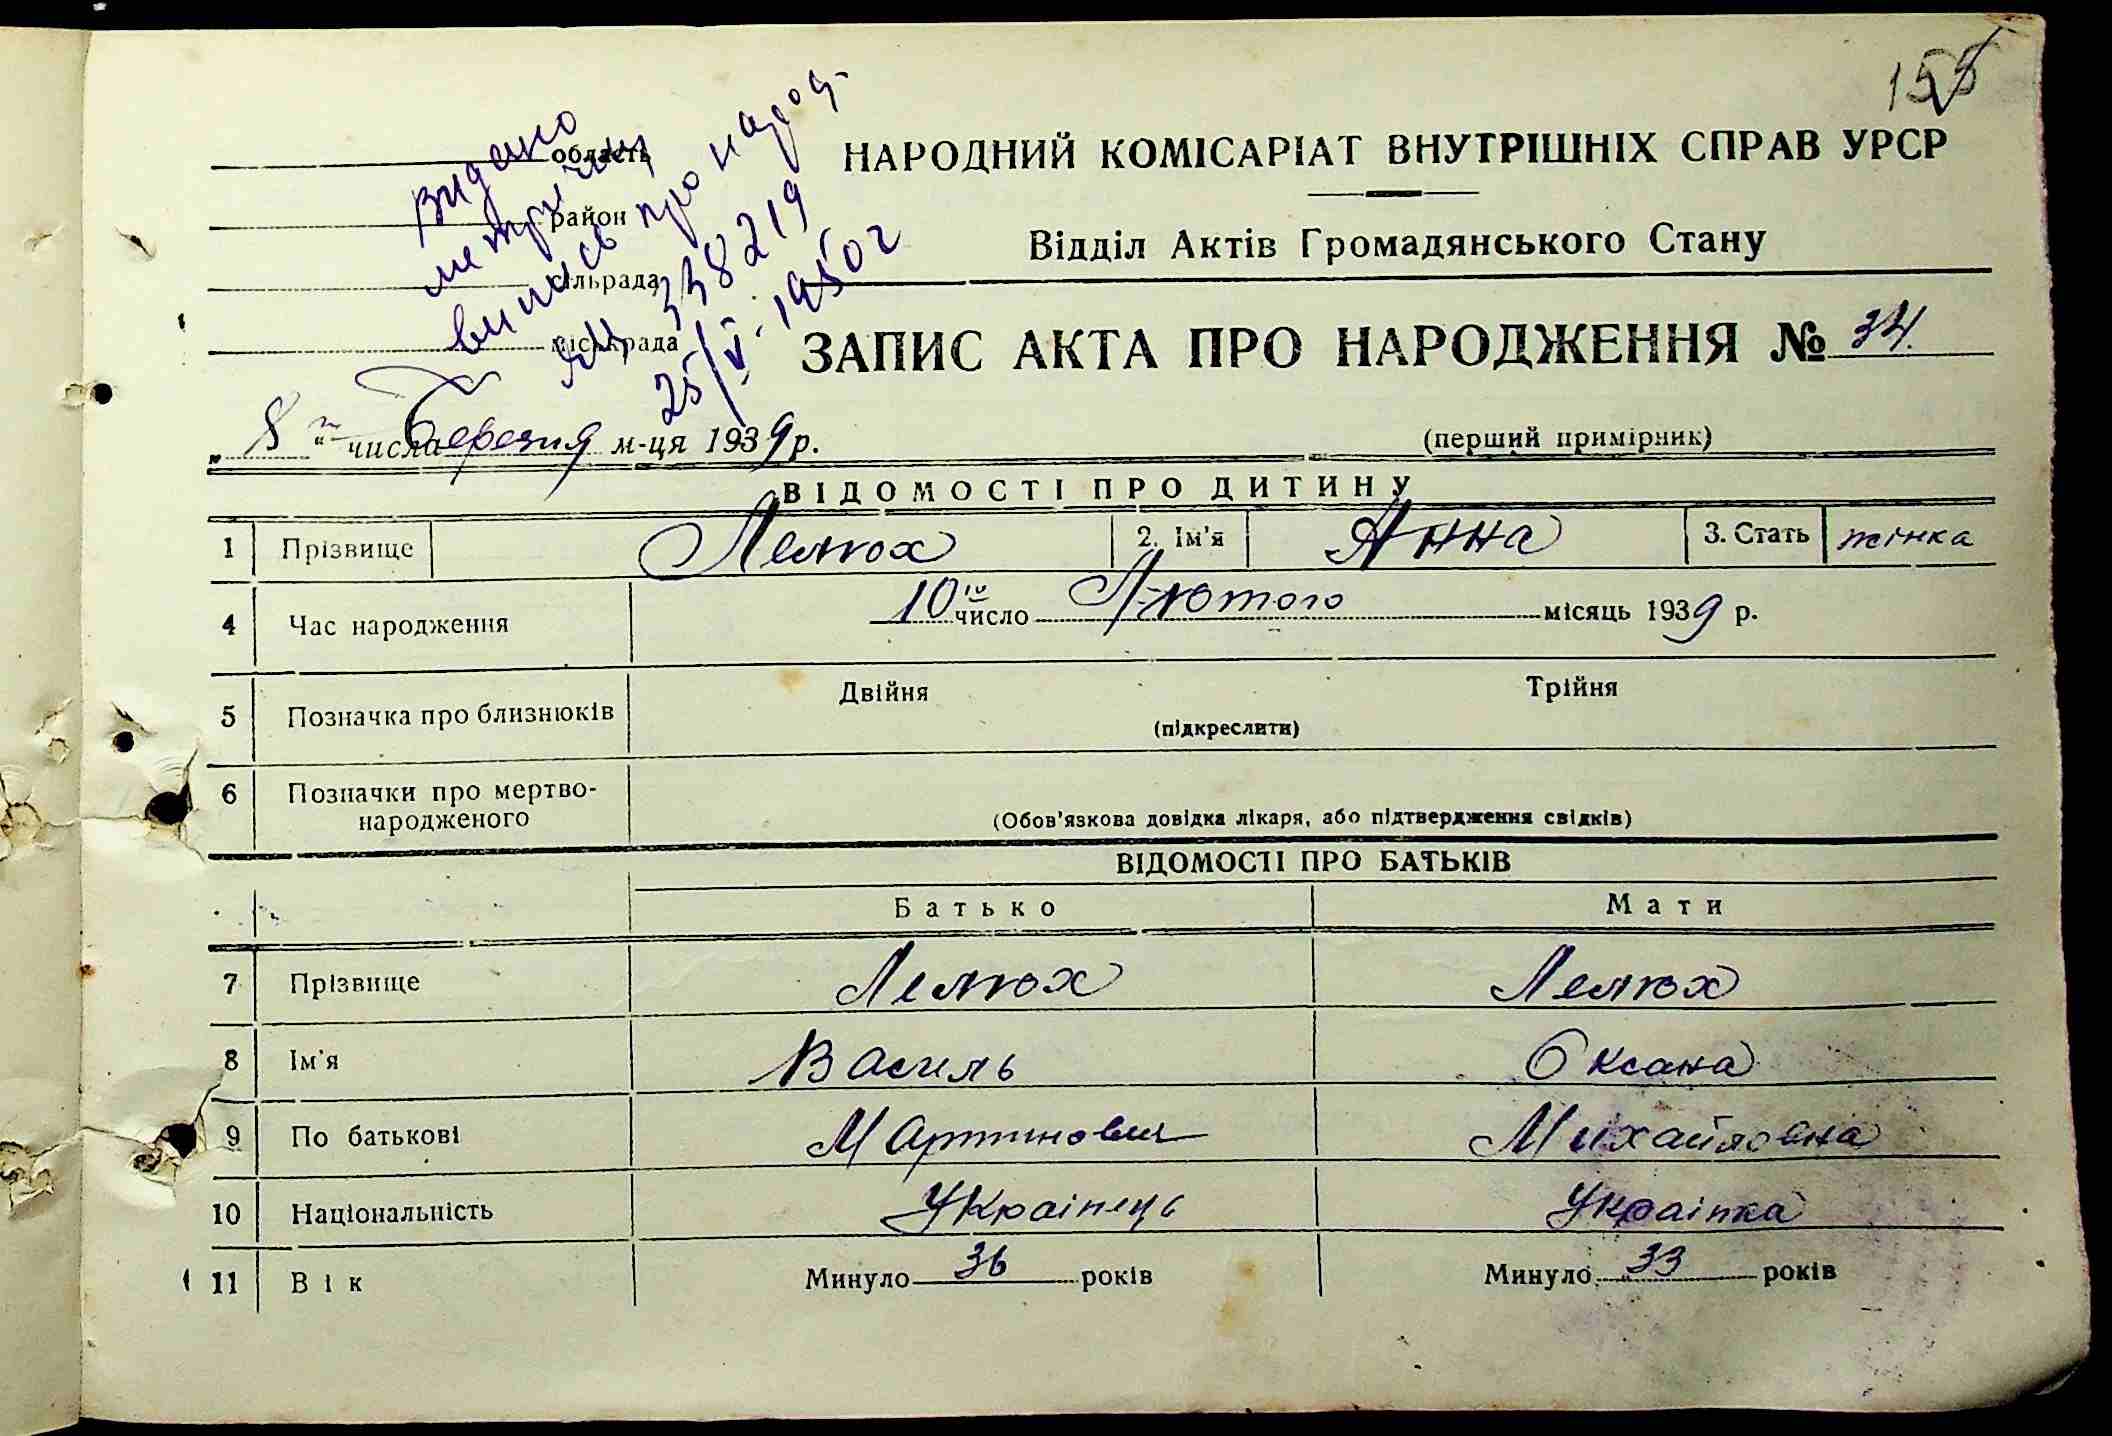 155
Видано
метричну
випись про народ.
ЯЩ 338219
25/V. 1950 г
область
район
сільрада
міськрада
НАРОДНИЙ КОМІСАРІАТ ВНУТРІШНІХ СПРАВ УРСР
Відділ Актів Громадянського Стану
ЗАПИС АКТА ПРО НАРОДЖЕННЯ № 34.
„ 8 " числа Березня м-ця 1939 р.
(перший примірник)
ВІДОМОСТІ ПРО ДИТИНУ
1 Прізвище Лелюх 2. Ім'я Анна 3. Стать жінка
4 Час народження 10го число Лютого місяць 1939 р.
5 Позначка про близнюків Двійня Трійня
(підкреслити)
6 Позначки про мертво-
народженого
(Обов'язкова довідка лікаря, або підтвердження свідків)
ВІДОМОСТІ ПРО БАТЬКІВ
Батько Мати
7 Прізвище Лелюх Лелюх
8 Ім'я Василь Оксана
9 По батькові Мартинович Михайловна
10 Національність Українець Українка
11 Вік Минуло 36 років Минуло 33 років